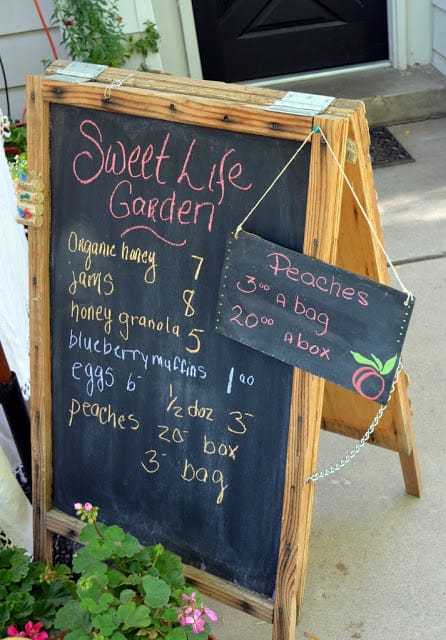 Sweet Life
Garden
Organic honey 7
jams 8
honey granola 5
blueberry muffins 1.00
eggs 6- 1/2 doz 3-
peaches 20- box
3- bag
Peaches
3.00 A bag
20.00 A box